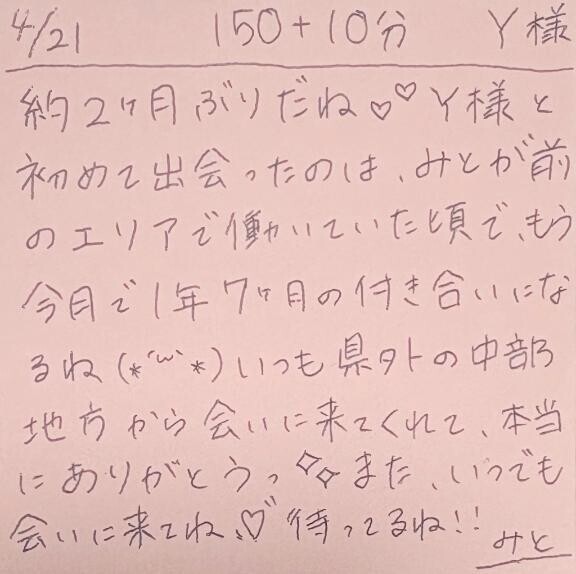 4/21 150+10分 Y様
約2ヶ月ぶりだね♡♡Y様と
初めて出会ったのは、みとが前
のエリアで働いていた頃で、もう
今月で1年7ヶ月の付き合いにな
るね(*´ω`*)いつも県外の中部
地方から会いに来てくれて、本当
にありがとうっ✧✧また、いつでも
会いに来てね、♡待ってるね!!
みと